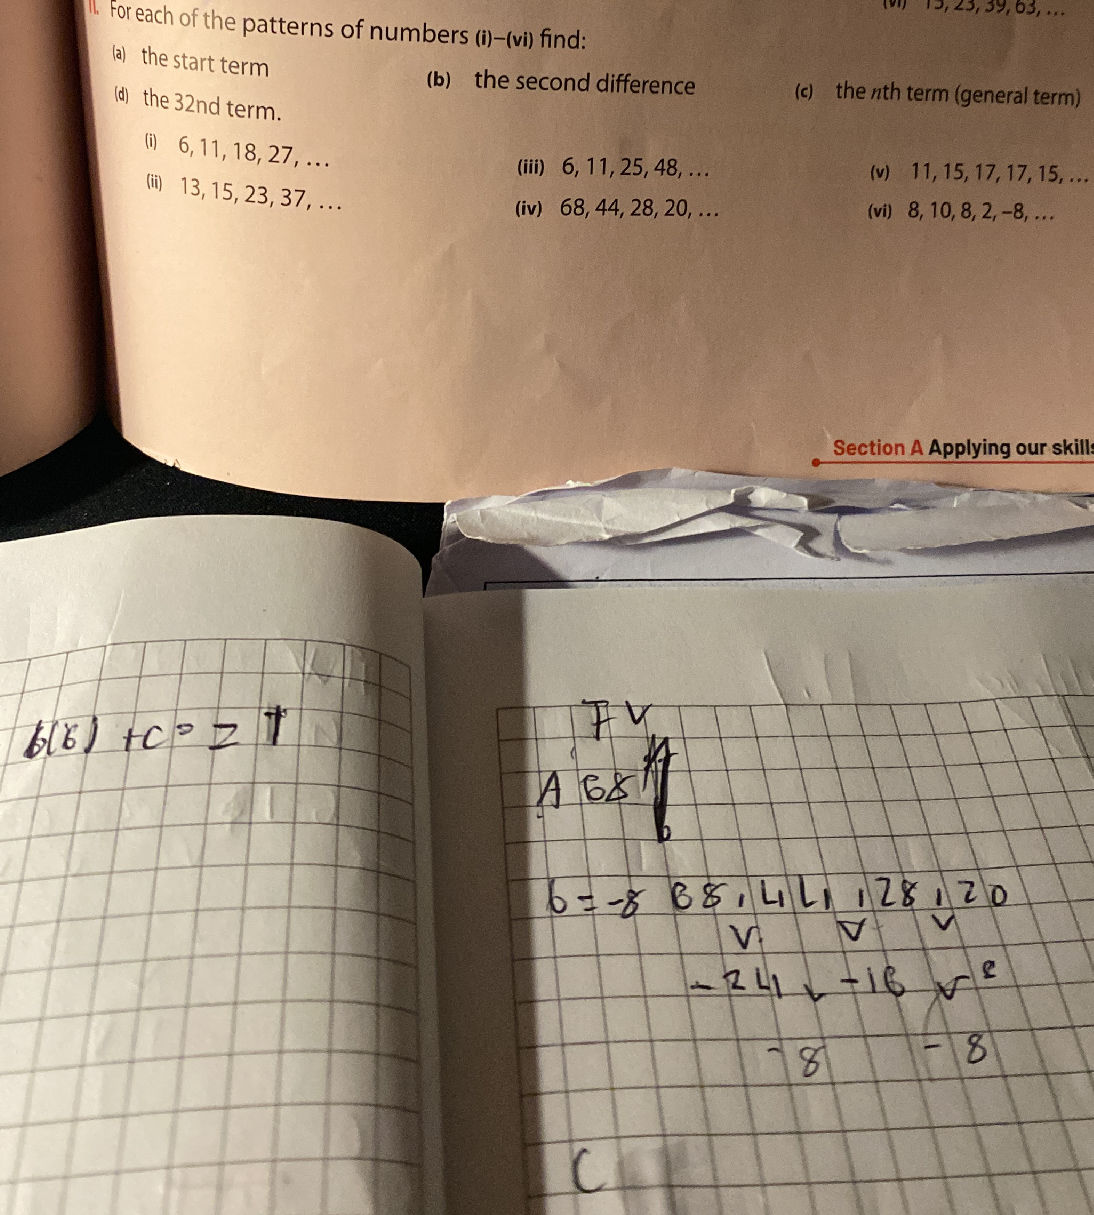 (vi) 15, 23, 39, 63, ...
11. For each of the patterns of numbers (i)–(vi) find:
(a) the start term
(b) the second difference
(c) the nth term (general term)
(d) the 32nd term.
(i) 6, 11, 18, 27, ...
(iii) 6, 11, 25, 48, ...
(v) 11, 15, 17, 17, 15, ...
(ii) 13, 15, 23, 37, ...
(iv) 68, 44, 28, 20, ...
(vi) 8, 10, 8, 2, –8, ...
Section A Applying our skills
+c =
IV
A 68
b = -8 68, 44, 28, 20
-24 -16
-8 -8
C